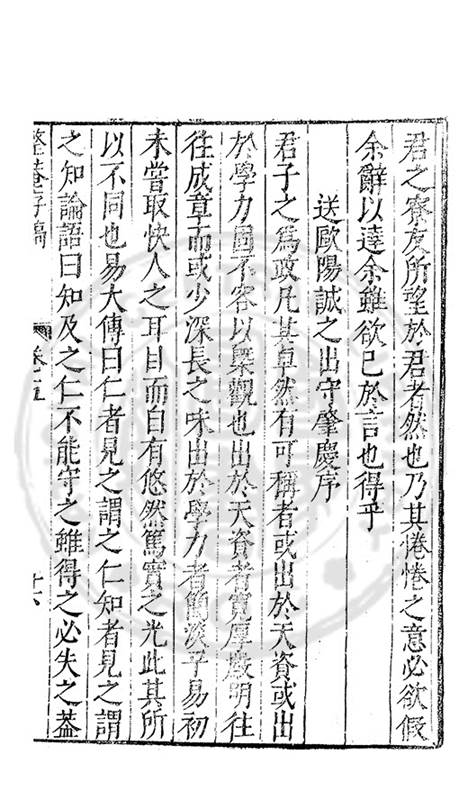 君之寮友所望於君者然也乃其惓惓之意必欲假
余辭以達余雖欲已於言也得乎
送歐陽誠之出守肇慶序
君子之爲政凡其卓然有可稱者或出於天資或出
於學力固不容以槩觀也出於天資者寬厚嚴明往
往成章而或少深長之味出於學力者簡淡平易初
未嘗取快人之耳目而自有悠然篤實之光此其所
以不同也易大傳曰仁者見之謂之仁知者見之謂
之知論語曰知及之仁不能守之雖得之必失之蓋
整菴存稿
卷之五
十六